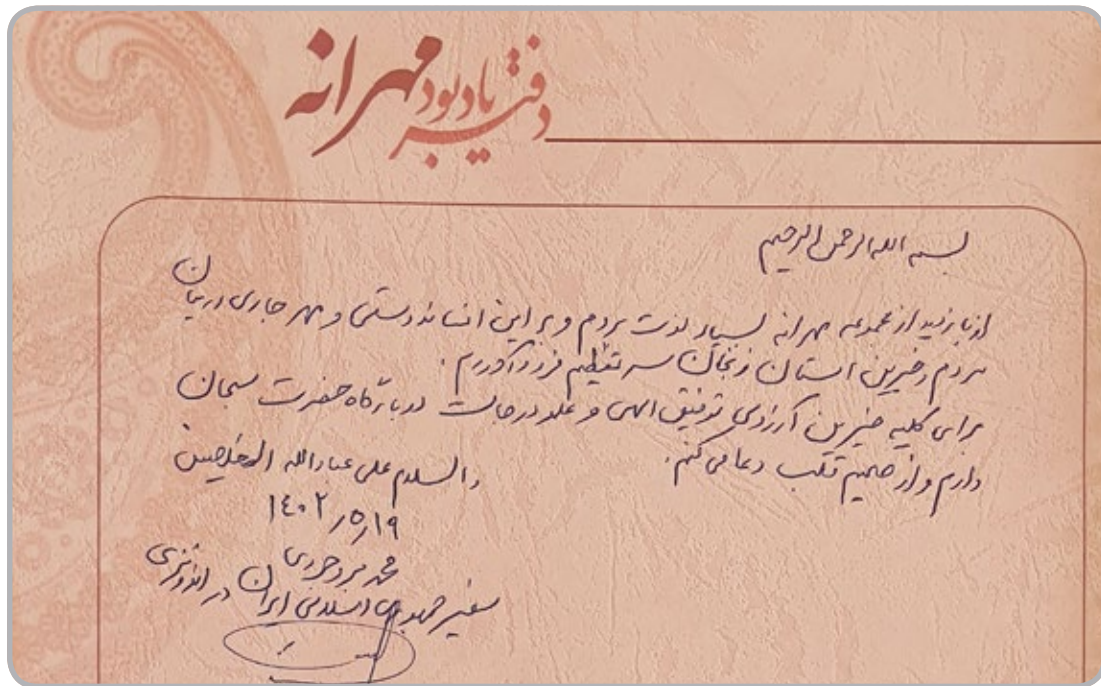 دفتر یادبود مهرانه
بسم الله الرحمن الرحیم
از بازدید از مجموعه مهرانه بسیار لذت بردم و بر این انساندوستی و مهر جاری در میان
مردم و خیرین استان زنجان سر تعظیم فرود آوردم.
برای کلیه خیرین آرزوی توفیق الهی و علو درجات در بارگاه حضرت سبحان
دارم و از صمیم قلب دعا می کنم.
والسلام علی عبادالله المخلصین
۱۴۰۲/۵/۱۹
محمد بروجردی
سفیر جمهوری اسلامی ایران در اندونزی